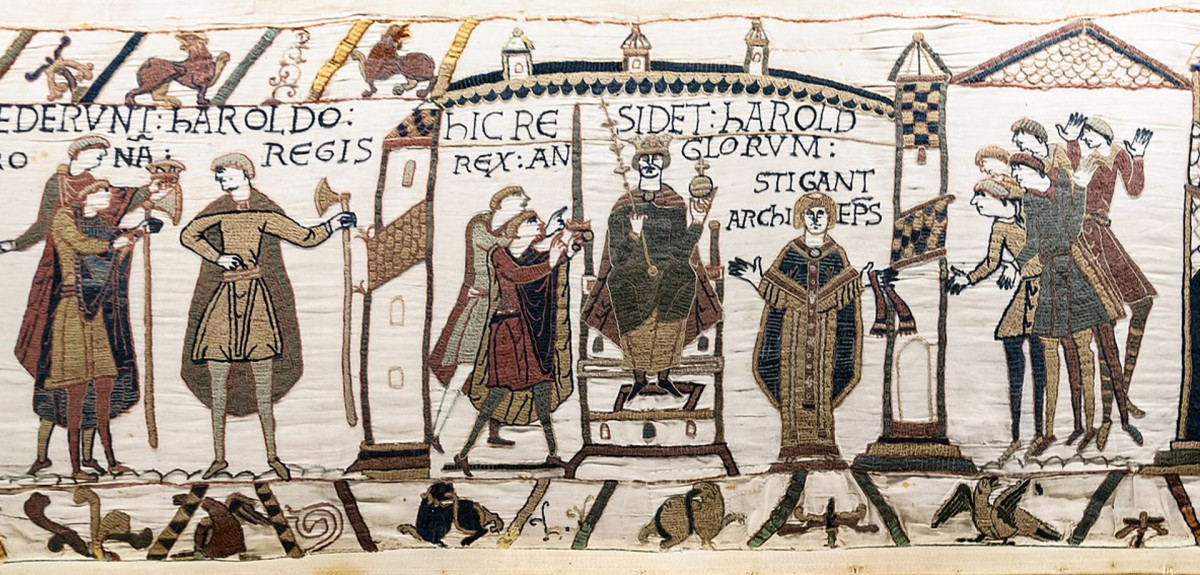 EDERVNT: hAROLDO:
RO NÃ: REGIS
hIC RE SIDET: hAROLD
REX: AN GLORVM:
STIGANT
ARChI EP̄S